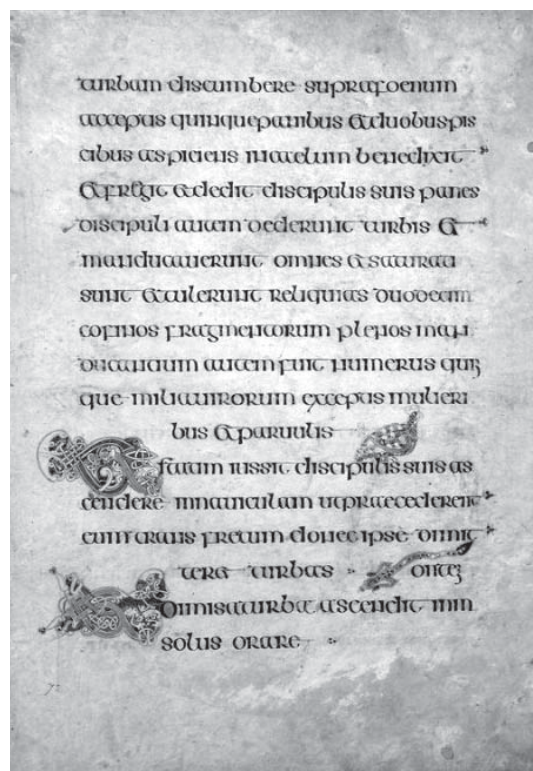 turbam discumbere supra foenum
acceptis quinque panibus & duobus pis
cibus aspiciens in caelum benedixit
& fregit & dedit discipulis suis panes
discipuli autem dederunt turbis &
manducauerunt omnes & saturati
sunt & tulerunt reliquias duodecim
cofinos fragmentorum plenos man
ducantium autem fuit numerus quin
que milia uirorum exceptis mulieri
bus & paruulis
Et statim iussit discipulis suis as
cendere in nauiculam ut praecederent
eum trans fretum donec ipse dimit
teret turbas
Et dimisa turba ascendit in m
solus orare